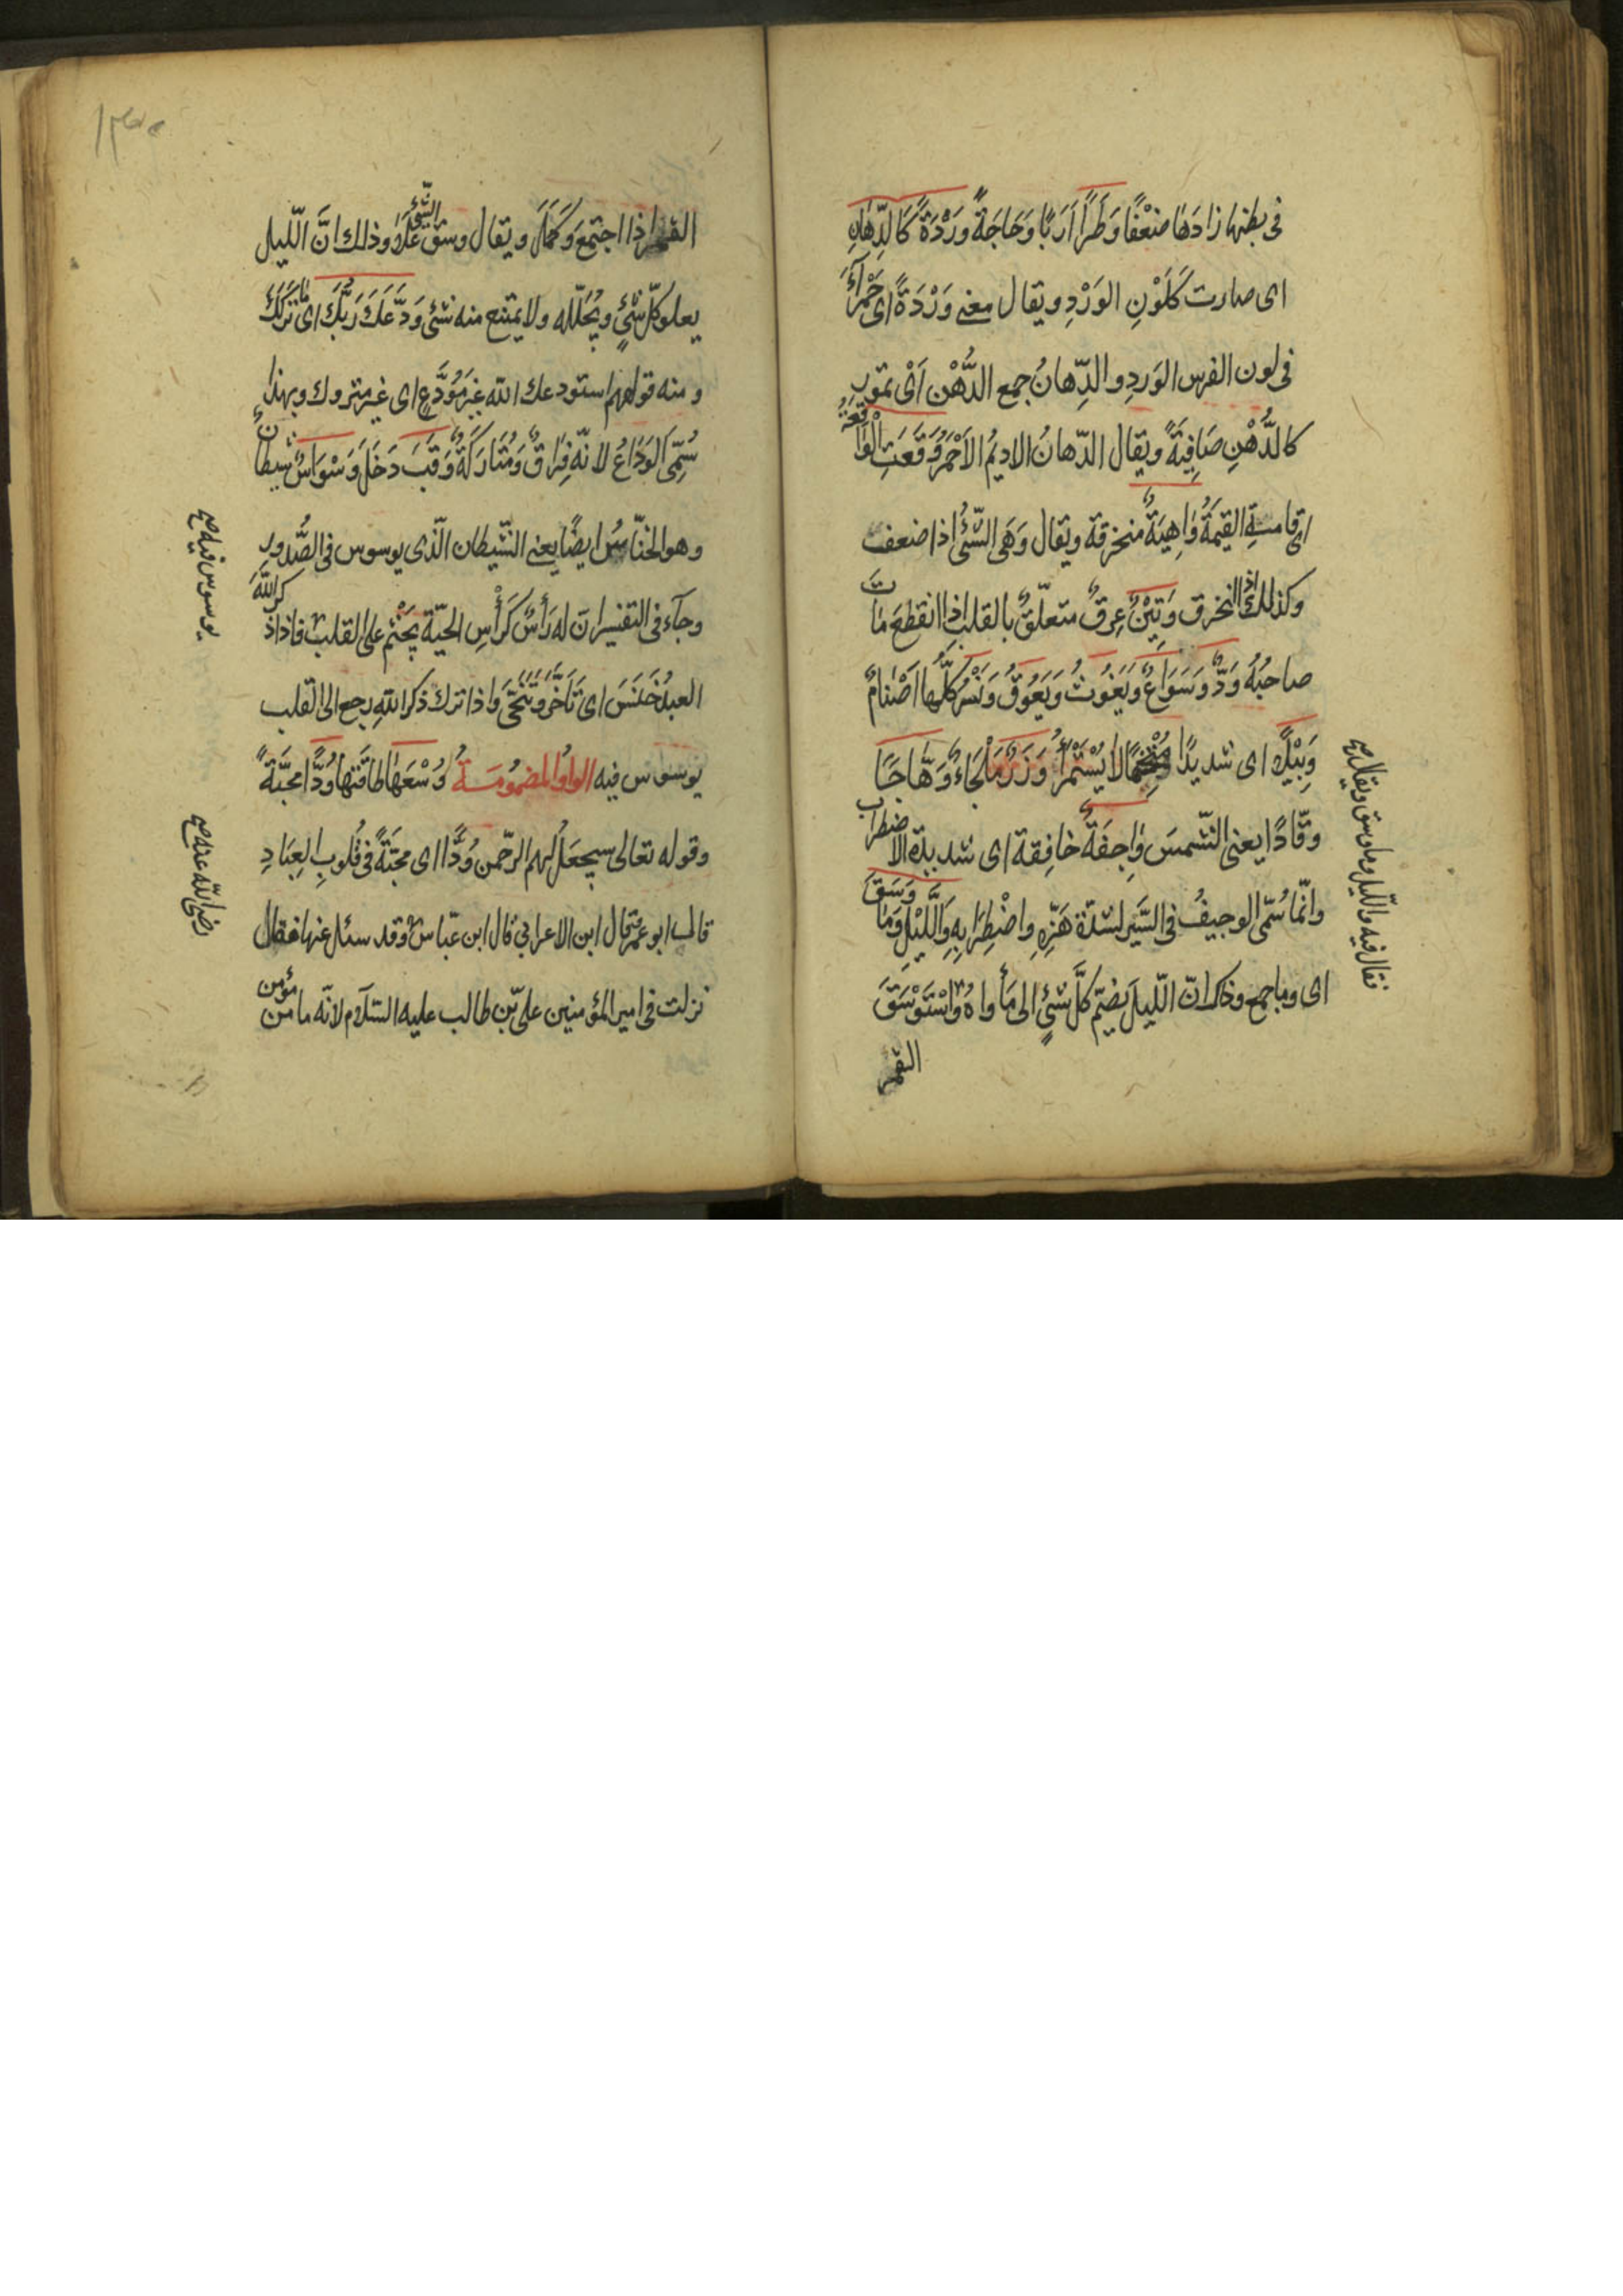 فى بطنها زادَها ضَعْفًا وَطَرًا اَرَبًا وَحَاجَةً وَرْدَةً كَالدِّهَانِ
اى صارت كَلَوْنِ الوَرْدِ ويقال معنى وَرْدَةً اى حَمْرَآءَ
فى لون الفرس الوَردِ والدِّهانُ جمع الدُّهْن اَىْ تمور
كالدُّهْنِ صَافِيَةً ويقال الدّهانُ الاديمُ الاَحْمَرُ وَقَعَتِ الْوَاقِعَةُ
اى قامت القِيٰمَةُ وٰاهِيَةٌ منخرقة ويقال وَهَى الشّئُ اذا ضعف
وكذلك اذا انخرق وَتِيْنٌ عِرقٌ متعلّقٌ بالقلب اذا انقطعَ مٰاتَ
صاحبُهُ وَدٌّ وَسَوَاعٌ وَيَغُوثُ وَيَعُوقُ وَنَسْرٌ كلّها اَصْنامٌ
وَبِيْلًا اى شديدًا مُتْخِمًا لا يُسْتَمْرَأُ وَزَرٌ مَلْجَاءٌ وَهَّاجًا
وقّادًا يعنى الشّمسَ وٰاجِفَةٌ خافِقة اى شديدة الاضطراب
وانّما سُمّى الوجيفُ فى السَّير لشدّة هَزِّهِ واضْطِرَابِهِ وَاللَّيْلِ وَمَا وَسَقَ
اى وما جمع وذلك انّ اللّيلَ يضمّ كلَّ شئٍ الى مَأواهُ وَاسْتَوْسَقَ
القمر
فقال فيه واللّيل وما وسق ويقال صح
القمر اذا اجتمع وَكَمَلَ ويقال وسق الشّئُ عَلَا وذلك انَّ اللّيل
يعلو كلّ شئٍ ويُجَلّله ولا يمتنع منه شئ وَدَّعَكَ رَبُّكَ اى مٰا تَرَكَكَ
ومنه قولهم استودعك الله غيرَ مُوَدَّعٍ اى غير متروك وبهذا
سُمِّىَ الوَدَاعُ لانّه فِرَاقٌ وَمُتَارَكَةٌ وَقَبَ دَخَلَ وَسْوَاسٌ شيطانٌ
وهو الخنّاسُ ايضًا يعنى الشّيطان الّذى يوسوس فى الصُّدور
وجآء فى التفسير انّ له رَأسٌ كَرَأْسِ الحيّة يَجْثِم على القلب فاذا ذكر اللّهَ
العبدُ خَنَسَ اى تَأَخَّرَ وَتَنَحَّى وَاذا ترك ذكر الله رجع الى القلب
يوسوس فيه الواو المضمومة وُسْعَهٰا طاقَتَها وُدًّا محبَّةً
وقوله تعالى سيجعَلُ لهم الرّحمن وُدًّا اى محبّةً فى قُلُوبِ العِبَادِ
قال ابو عمر قال ابن الاعرابي قال ابن عبّاس وقد سئل عنها فقال
نزلت فى امير المؤمنين علىّ بن طالب عليه السّلام لانّه ما من مؤمن
يوسوس فيه صح
رضى اللّه عنه صح